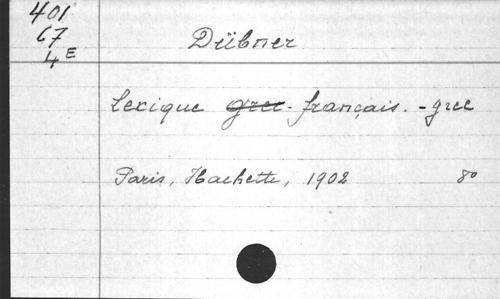 401
67
4E
Dübner
Lexique grec-français.-grec
Paris, Hachette, 1902 8°